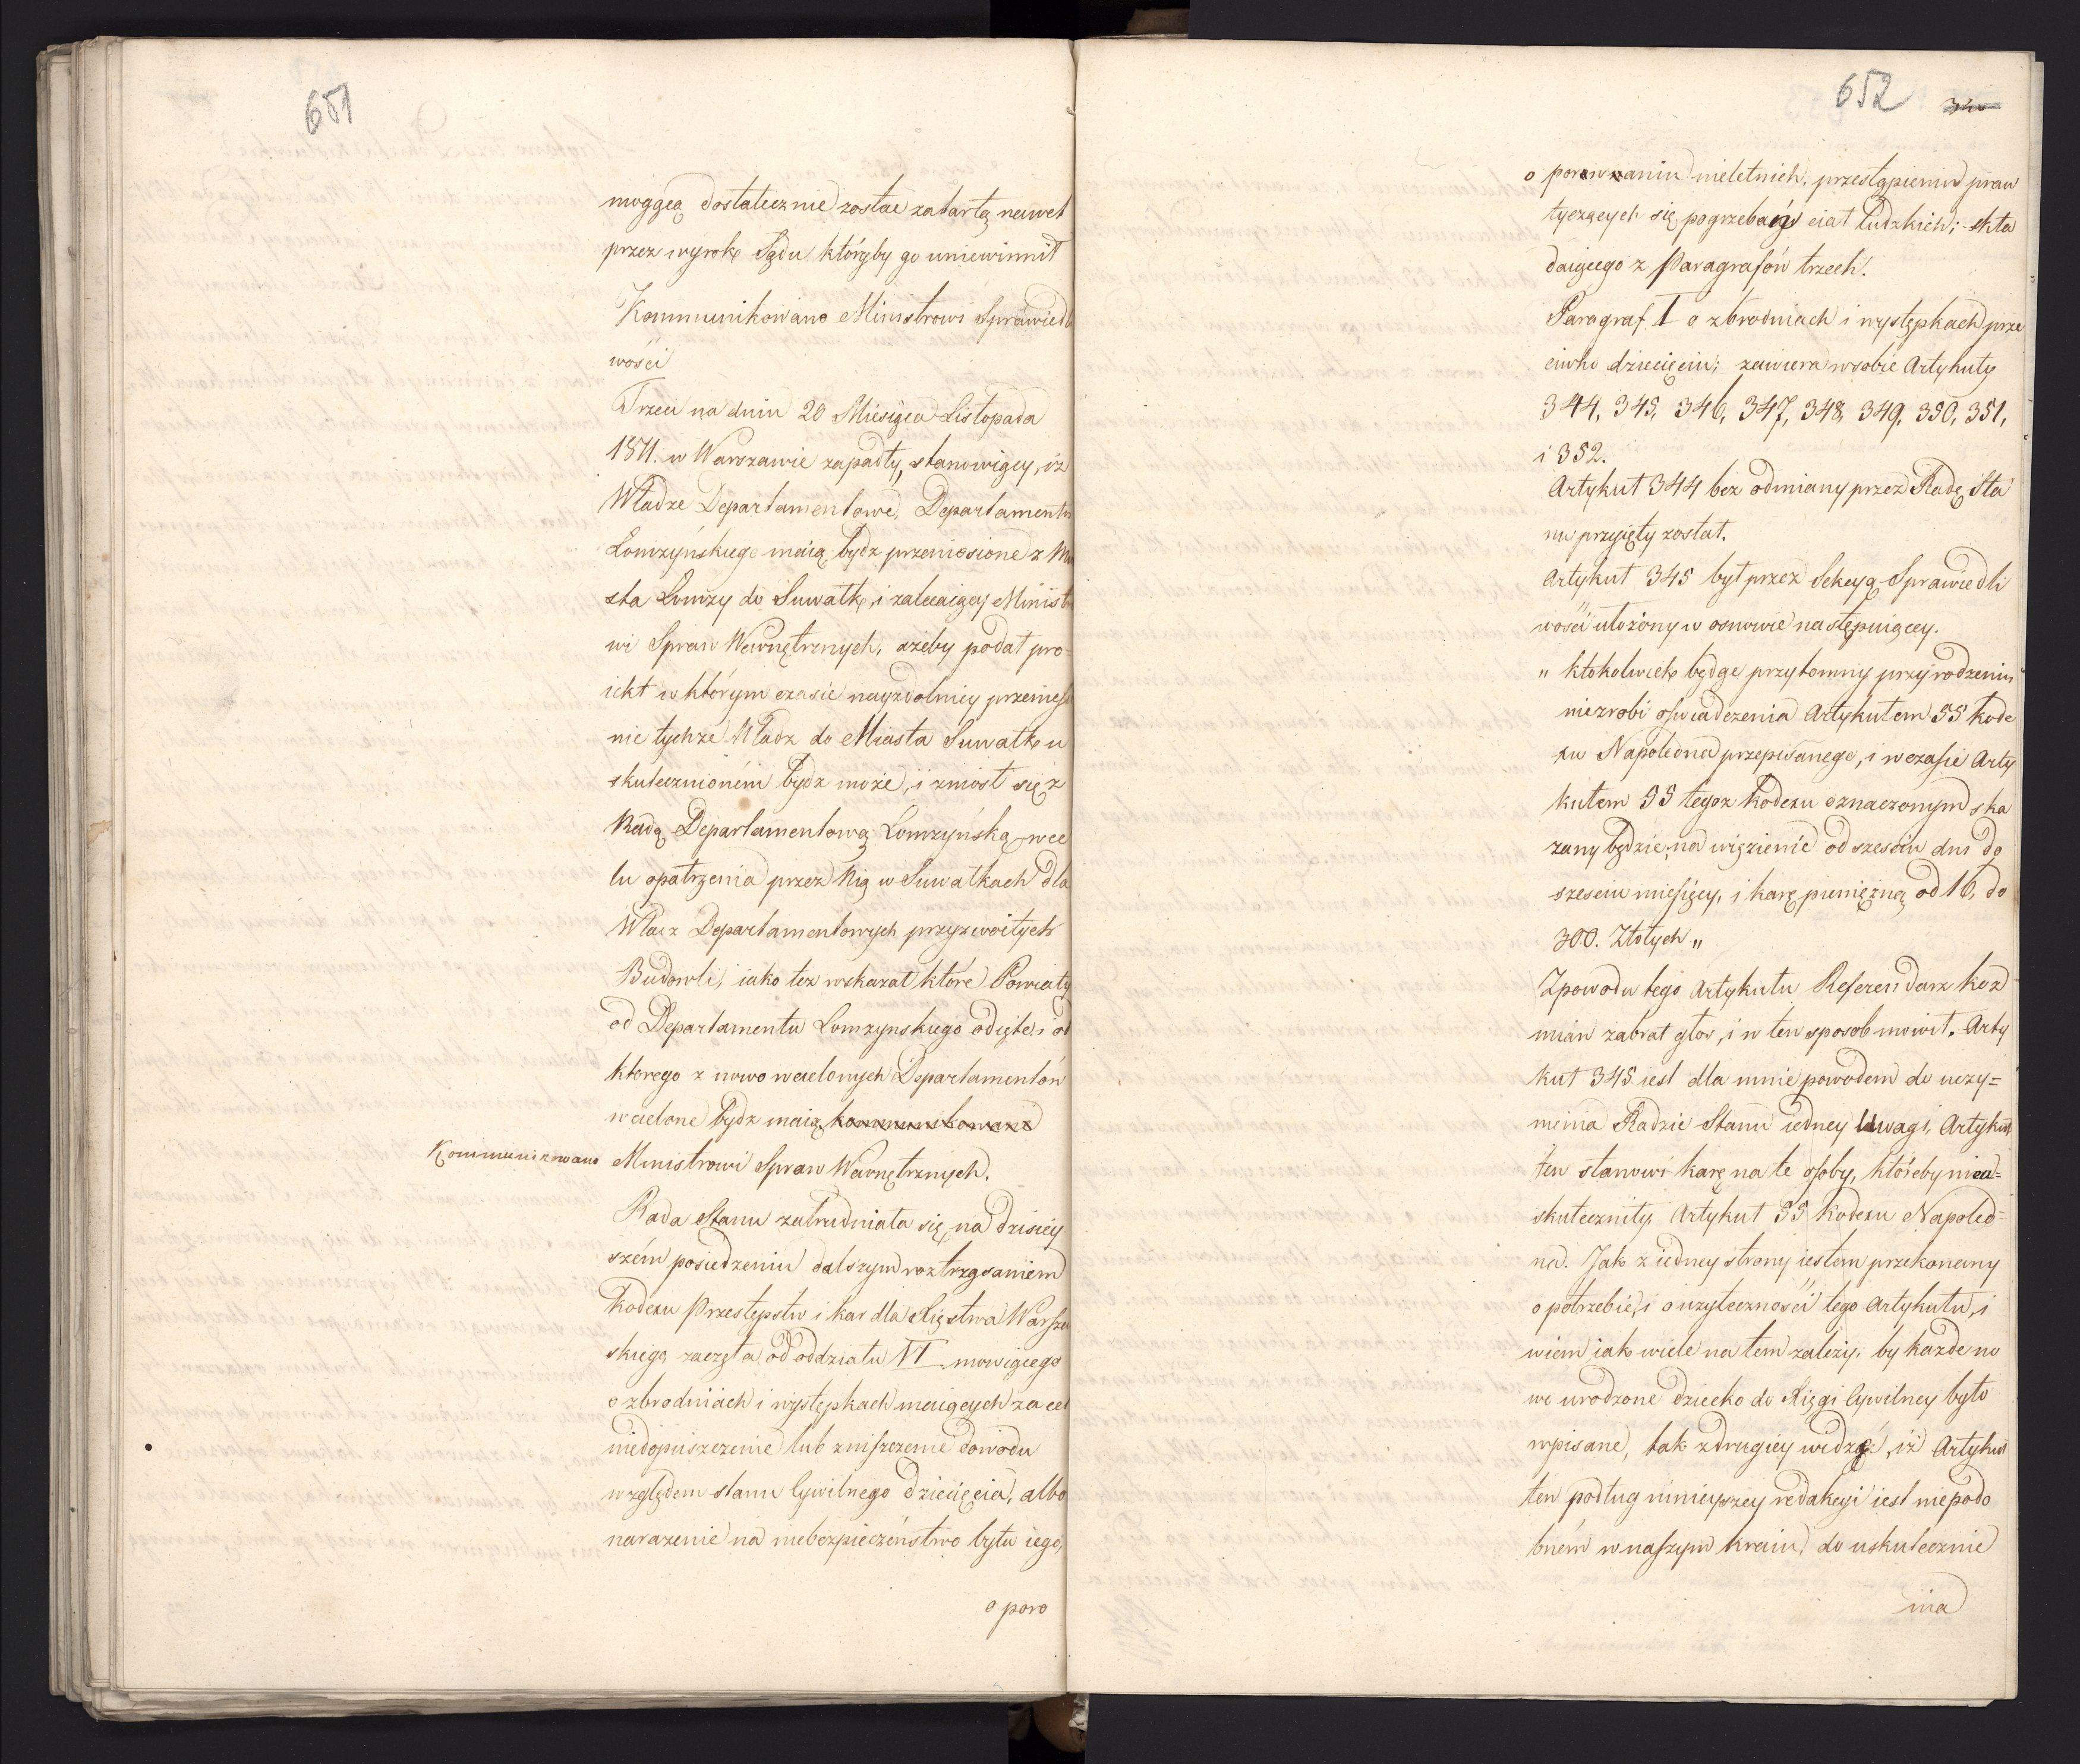 651
mogącą dostatecznie zostać zatartą nawet
przez wyrok Sądu któryby go uniewinnił
Kommunikowano Ministrowi Sprawiedli
wości
Trzeci na dniu 20 Miesiąca Listopada
1811. w Warszawie zapadły, stanowiący, iż
Władze Departamentowe, Departamentu
Łomżyńskiego maią bydź przeniesione z Mia
sta Łomży do Suwałk, i zalecaiący Ministro
wi Spraw Wewnętrznych, ażeby podał pro-
iekt w którym czasie nayzdolniey przeniesie
nie tychże Władz do Miasta Suwałk u
skutecznioném bydź może, i zniósł się z
Radą Departamentową Łomżyńską wce
lu opatrzenia przez Nią w Suwałkach dla
Władz Departamentowych przyzwoitych
Budowli, iako też wskazał które Powiaty
od Departamentu Łomżynskiego odięte, i od
ktorego z nowo wcielonych Departamentów
wcielone bydź maią. kommunikowano
Kommunikowano Ministrowi Spraw Wewnętrznych.
Rada Stanu zatrudniała się na dzisiey
szém posiedzeniu dalszym roztrząsaniem
Kodexu Przestępstw i kar dla Xięstwa Warszaw
skiego zaczęła od oddziału VI. mowiącego
o zbrodniach i występkach maiących za cel
niedopuszczenie lub zniszczenie dowodu
względem stanu Cywilnego dziecięcia, albo
narażenie na niebezpieczeństwo bytu iego,
o poro
652 340
o porywaniu nieletnich, przestąpieniu praw
tyczących się pogrzebań ciał ludzkich; skła
daiącego z Paragrafów trzech.
Paragraf I o zbrodniach i występkach prze
ciwko dziecięciu; zawiera w sobie Artykuły
344, 345, 346, 347, 348, 349, 350, 351,
i 352.
Artykuł 344 bez odmiany przez Radę Sta
nu przyięty został.
Artykuł 345 był przez Sekcyą Sprawiedli
wości ułożony w osnowie następuiącey.
" ktokolwiek będąc przytomny przy rodzeniu
niezrobi oświadczenia Artykułem 55 kode
xu Napoleona przepisanego, i w czasie Arty
kułem 55 tegoż kodexu oznaczonym ska
zany będzie; na więzienie od sześciu dni do
sześciu miesięcy, i karę pieniężną od 16, do
300. Złotych "
Z powodu tego Artykułu Referendarz Koź
mian zabrał głos, i w ten sposob mowił. Arty
kuł 345 iest dla mnie powodem do uczy=
nienia Radzie Stanu iedney Uwagi, Artykuł
ten stanowi karę na te osoby, któreby nieu=
skuteczniły Artykuł 55 Kodexu Napoleo=
na. Jak z iedney strony iestem przekonany
o potrzebie, i o użyteczności tego Artykułu, i
wiem iak wiele na tem zależy, by każde no
wo urodzone dziecko do Xięgi Cywilney było
wpisane, tak z drugiey widzę, iż Artykuł
ten podług ninieyszey redakcyi iest niepodo
bném w naszym kraiu, do uskutecznie
nia